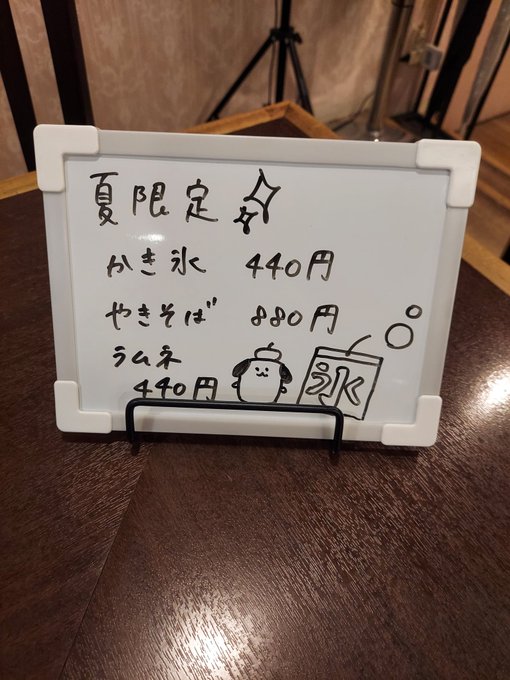 夏限定
かき氷 440円
やきそば 880円
ラムネ
440円
氷